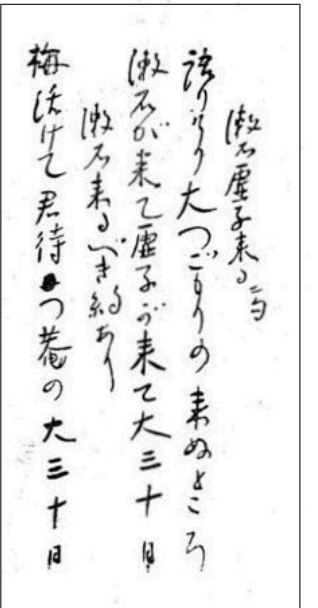 漱石虚子来る 二句
語りけり大つごもりの来ぬところ
漱石が来て虚子が来て大三十日
漱石来るべき約あり
梅活けて君待つ菴の大三十日